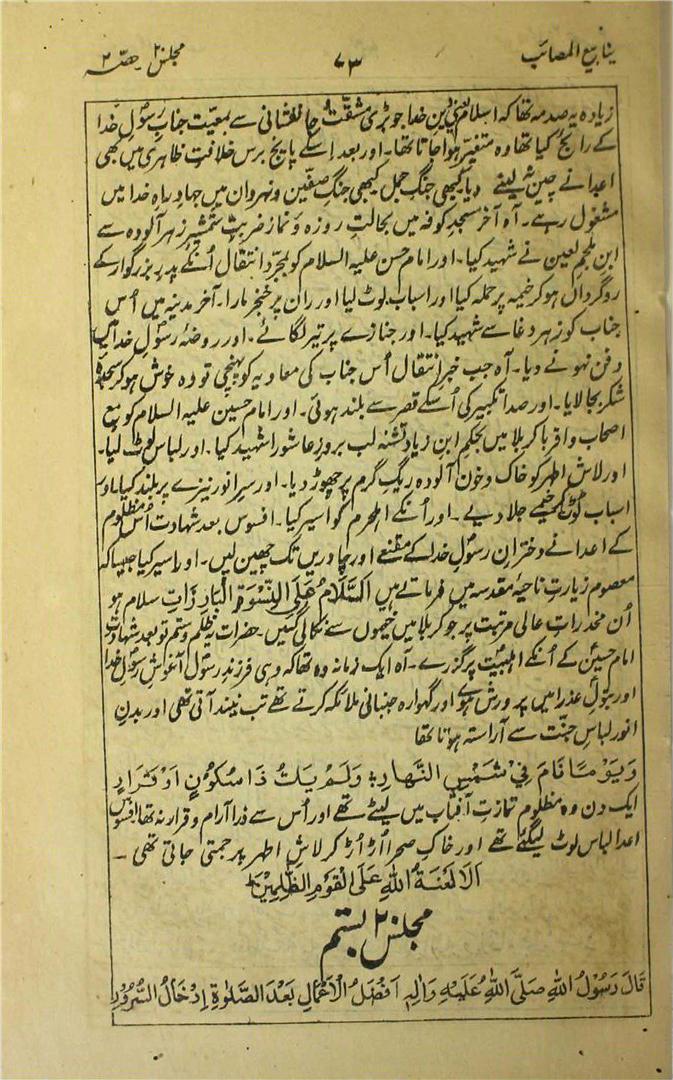 ینابیع المصائب
۷۳
مجلس ۲۰ حصّہ ۲
زیادہ یہ صدمہ تھا کہ اسلام یعنی دین خدا جو بڑی مشقّت و جانفشانی سے بمعیّت جناب رسولِ خدا
کے رائج کیا تھا وہ متغیّر ہوا جاتا تھا۔ اور بعد اسکے پانچ برس خلافتِ ظاہری میں بھی
اعدا نے چین نہ لینے دیا کبھی جنگِ جمل کبھی جنگِ صفّین و نہروان میں جہادِ راہِ خدا میں
مشغول رہے۔ آہ آخر مسجدِ کوفہ میں بحالتِ روزہ و نماز ضربتِ شمشیرِ زہر آلودہ سے
ابن ملجم لعین نے شہید کیا۔ اور امام حسن علیہ السلام کو بمجرّد انتقال اُنکے پدرِ بزرگوار کے
روگرداں ہو کر خیمہ پر حملہ کیا اور اسباب لوٹ لیا اور ران پر خنجر مارا۔ آخر مدینہ میں اُس
جناب کو زہرِ دغا سے شہید کیا۔ اور جنازے پر تیر لگائے۔ اور روضۂ رسولِ خدا میں
دفن نہونے دیا۔ آہ جب خبرِ انتقال اُس جناب کی معاویہ کو پہنچی تو وہ خوش ہو کر سجدۂ
شکر بجا لایا۔ اور صدا تکبیر کی اُسکے قصر سے بلند ہوئی۔ اور امام حسین علیہ السلام کو مع
اصحاب و اقربا کربلا میں بحکمِ ابن زیاد تشنہ لب بروزِ عاشورا شہید کیا۔ اور لباس لوٹ لیا۔
اور لاشِ اطہر کو خاک و خون آلودہ ریگِ گرم پر چھوڑ دیا۔ اور سرِ انور نیزے پر بلند کیا اور
اسباب لوٹ کر خیمے جلا دیے۔ اور اُنکے اہلحرم کو اسیر کیا۔ افسوس بعد شہادت اُس مظلوم
کے اعدا نے دخترانِ رسولِ خدا کے مقنعے اور چادریں تک چھین لیں۔ اور اسیر کیا جیسا کہ
معصوم زیارتِ ناحیہ مقدسہ میں فرماتے ہیں اَلسَّلَامُ عَلَی النِّسْوَۃِ الْبَارِزَاتِ سلام ہو
اُن مخدراتِ عالی مرتبت پر جو کربلا میں خیموں سے نکالی گئیں۔ حضرات یہ ظلم و ستم تو بعد شہادت
امام حسینؑ کے اُنکے اہلبیت پر گزرے۔ آہ ایک زمانہ وہ تھا کہ وہی فرزندِ رسول آغوشِ رسولِ خدا
اور بتولِ عذرا میں پرورش ہوئے اور گہوارہ جنبانی ملائکہ کرتے تھے تب نیند آتی تھی اور بدنِ
انور لباسِ جنّت سے آراستہ ہوتا تھا
وَیَوْمًا نَامَ فِیْ شَمْسِ النَّھَارِ ؛ وَلَمْ یَکُ ذَا سُکُوْنٍ اَوْ قَرَارٍ
ایک دن وہ مظلوم تمازتِ آفتاب میں لیٹے تھے اور اُس سے ذرا آرام و قرار نہ تھا افسوس
اعدا لباس لوٹ لیگئے تھے اور خاکِ صحرا اُڑ اُڑ کر لاشِ اطہر پر جمتی جاتی تھی ۔
اَلَا لَعْنَۃُ اللّٰہِ عَلَی الْقَوْمِ الظّٰلِمِیْنَ
مجلس ۲۰ بستم
قَالَ رَسُوْلُ اللّٰہِ صَلَّی اللّٰہُ عَلَیْہِ وَاٰلِہٖ اَفْضَلُ الْاَعْمَالِ بَعْدَ الصَّلٰوۃِ اِدْخَالُ السُّرُوْرِ